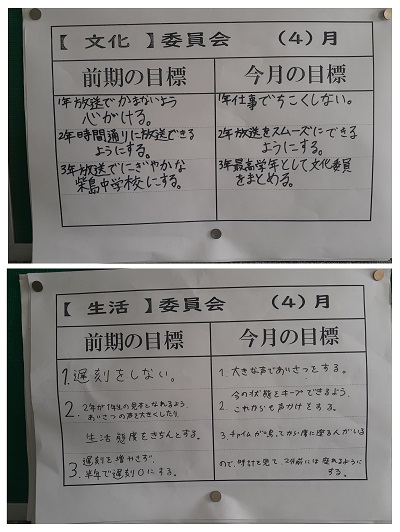 【 文化 】委員会 （4）月
前期の目標
1年放送でかまないよう
心がける。
2年時間通りに放送できる
ようにする。
3年放送でにぎやかな
柴島中学校にする。
今月の目標
1年仕事でちこくしない。
2年放送をスムーズにできる
ようにする。
3年最高学年として文化委員
をまとめる。
【 生活 】委員会 （4）月
前期の目標
1.遅刻をしない。
2.2年が1年生の見本となれるよう、
あいさつの声を大きくしたり
生活態度をきちんとする。
3.遅刻を増やさず、
半年で遅刻0にする。
今月の目標
1.大きな声であいさつをする。
今の状態をキープできるよう、
2.これからも声かけをする。
3.チャイムが鳴ってから席に座る人がいる
ので、時計を見て、2分前には座れるように
する。